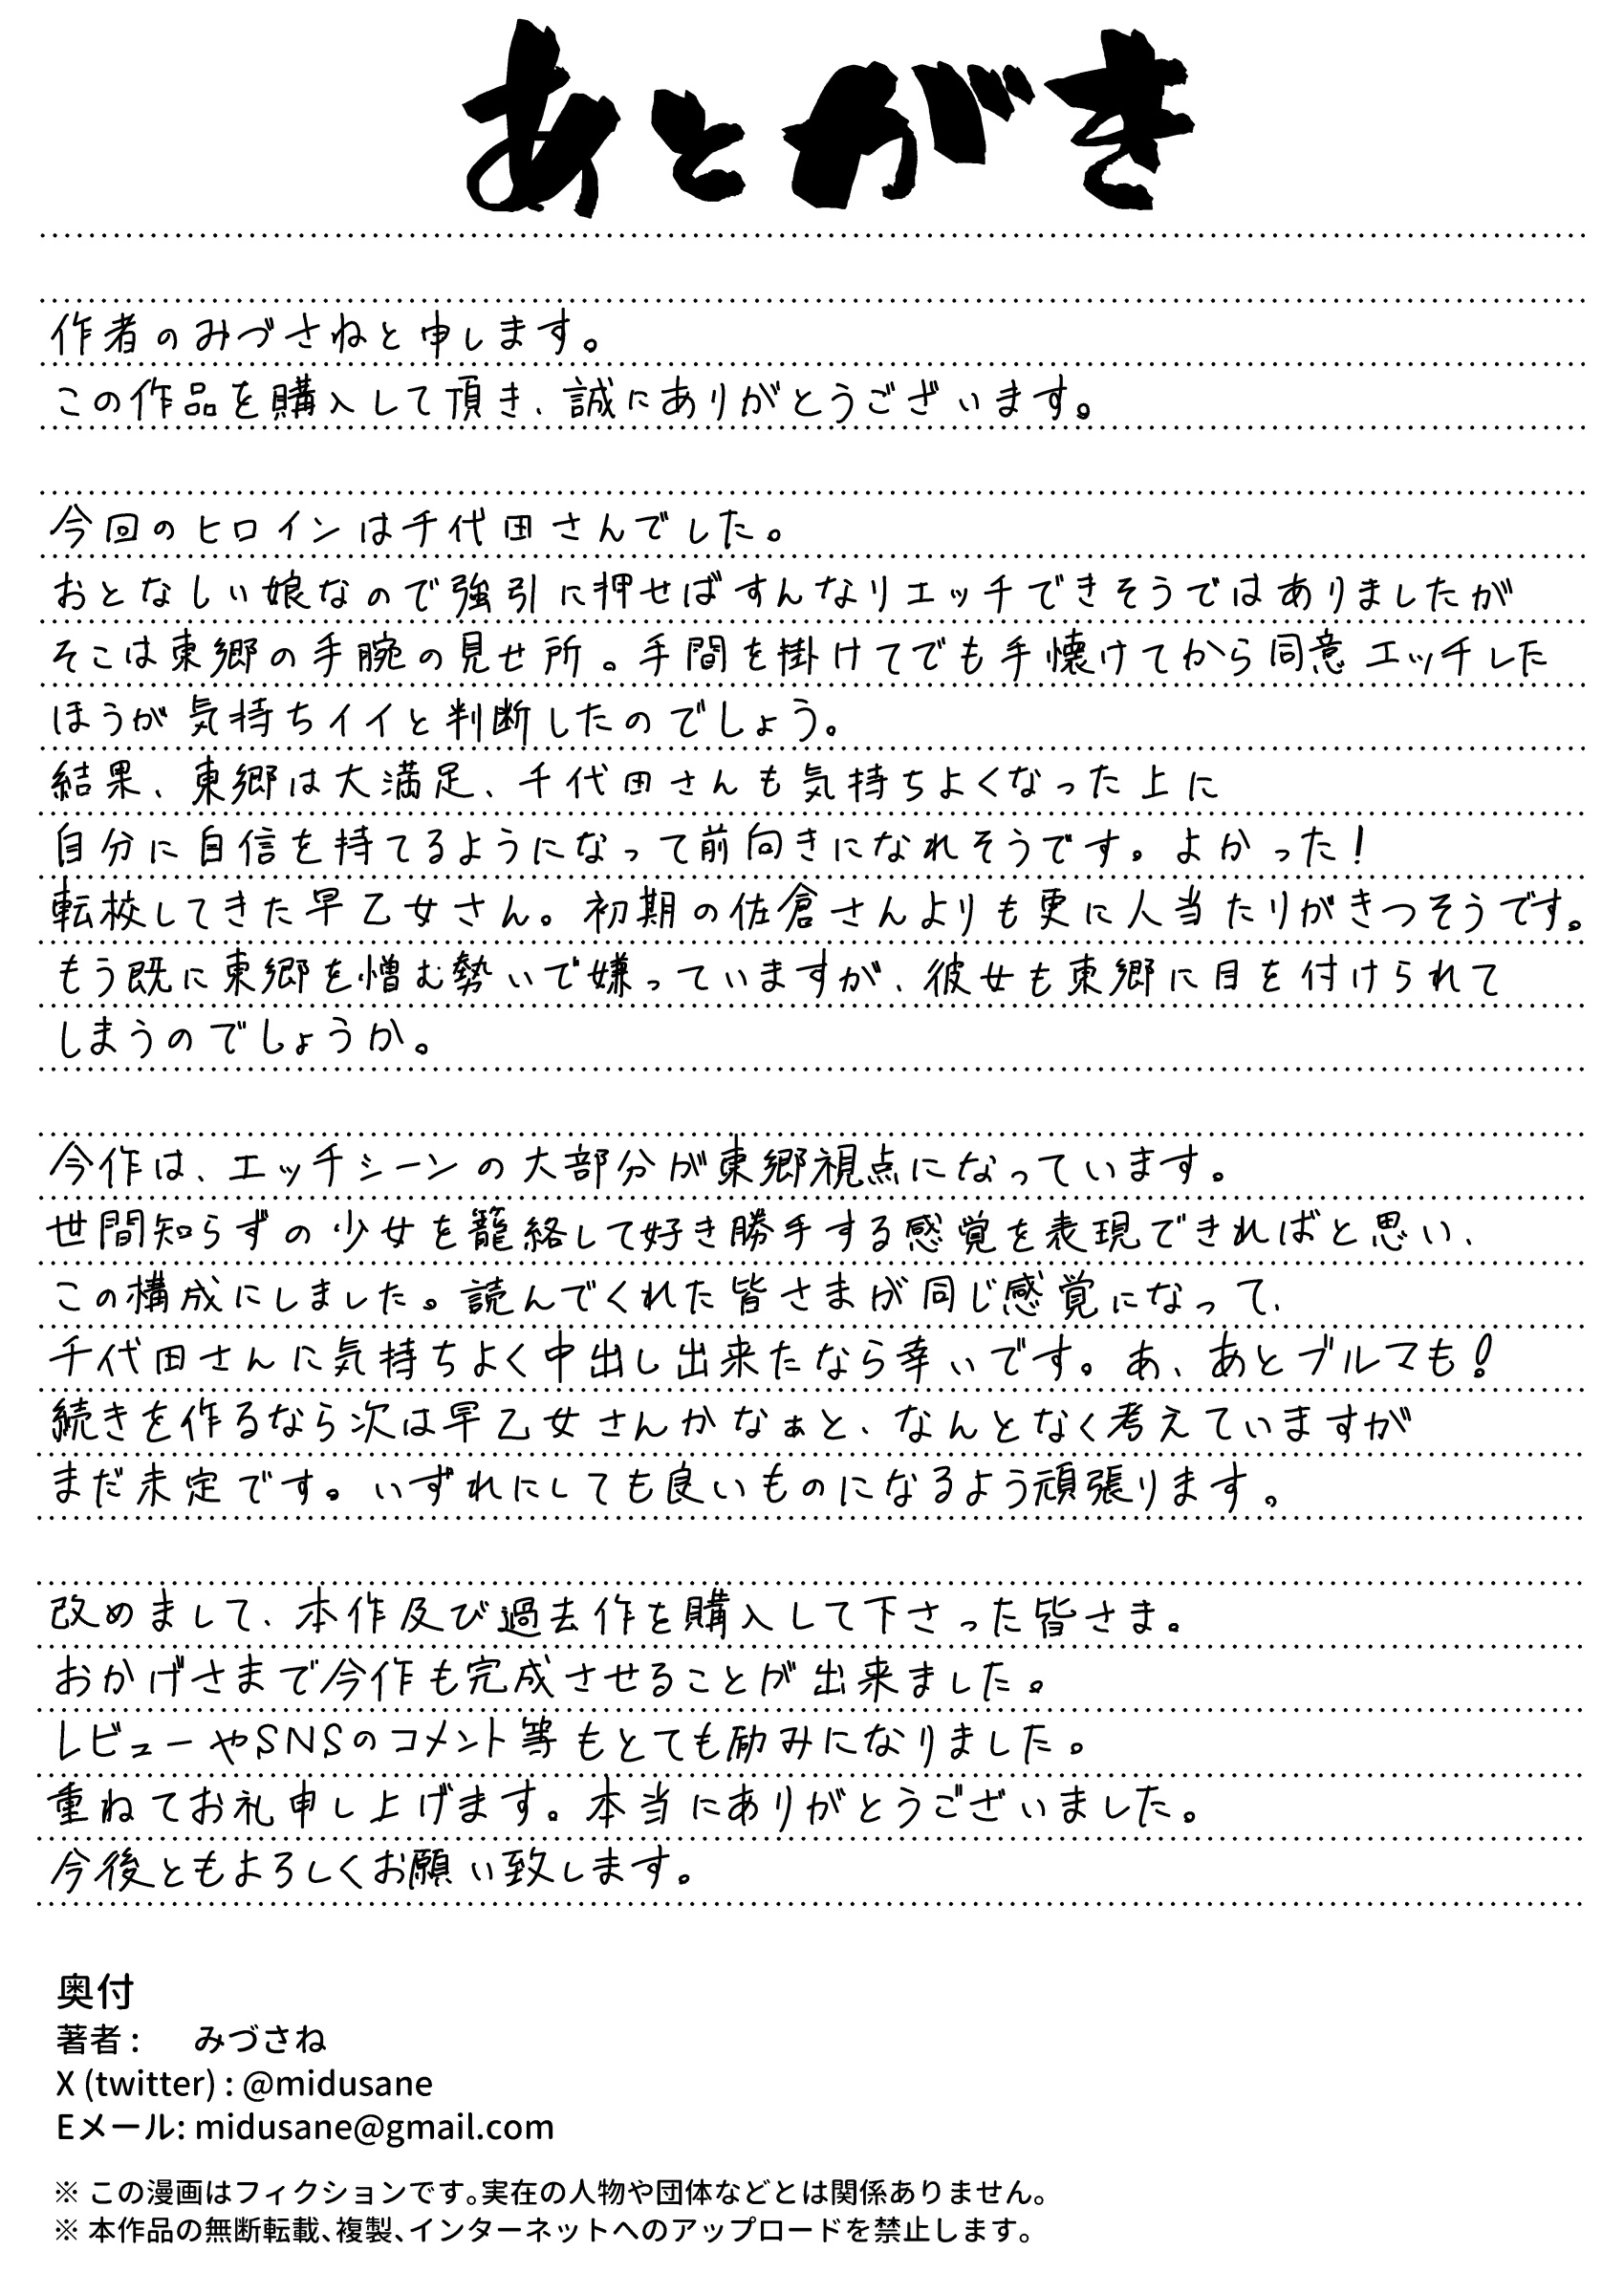 あとがき
作者のみづさねと申します。
この作品を購入して頂き、誠にありがとうございます。
今回のヒロインは千代田さんでした。
おとなしい娘なので強引に押せばすんなりエッチできそうではありましたが
そこは東郷の手腕の見せ所。手間を掛けてでも手懐けてから同意エッチした
ほうが気持ちイイと判断したのでしょう。
結果、東郷は大満足、千代田さんも気持ちよくなった上に
自分に自信を持てるようになって前向きになれそうです。よかった!
転校してきた早乙女さん。初期の佐倉さんよりも更に人当たりがきつそうです。
もう既に東郷を憎む勢いで嫌っていますが、彼女も東郷に目を付けられて
しまうのでしょうか。
今作は、エッチシーンの大部分が東郷視点になっています。
世間知らずの少女を籠絡して好き勝手する感覚を表現できればと思い、
この構成にしました。読んでくれた皆さまが同じ感覚になって、
千代田さんに気持ちよく中出し出来たなら幸いです。あ、あとブルマも!
続きを作るなら次は早乙女さんかなぁと、なんとなく考えていますが
まだ未定です。いずれにしても良いものになるよう頑張ります。
改めまして、本作及び過去作を購入して下さった皆さま。
おかげさまで今作も完成させることが出来ました。
レビューやSNSのコメント等もとても励みになりました。
重ねてお礼申し上げます。本当にありがとうございました。
今後ともよろしくお願い致します。
奥付
著者: みづさね
X (twitter) : @midusane
Eメール: midusane@gmail.com
※ この漫画はフィクションです。実在の人物や団体などとは関係ありません。
※ 本作品の無断転載、複製、インターネットへのアップロードを禁止します。